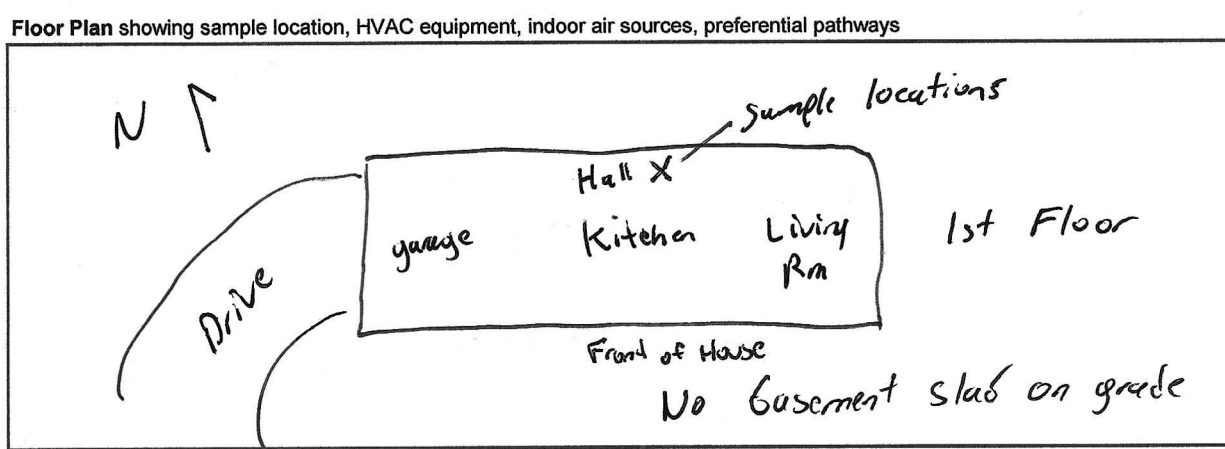 Floor Plan showing sample location, HVAC equipment, indoor air sources, preferential pathways
N
sample locations
Hall X
garage
Kitchen
Living
Rm
1st Floor
Drive
Front of House
No basement slab on grade